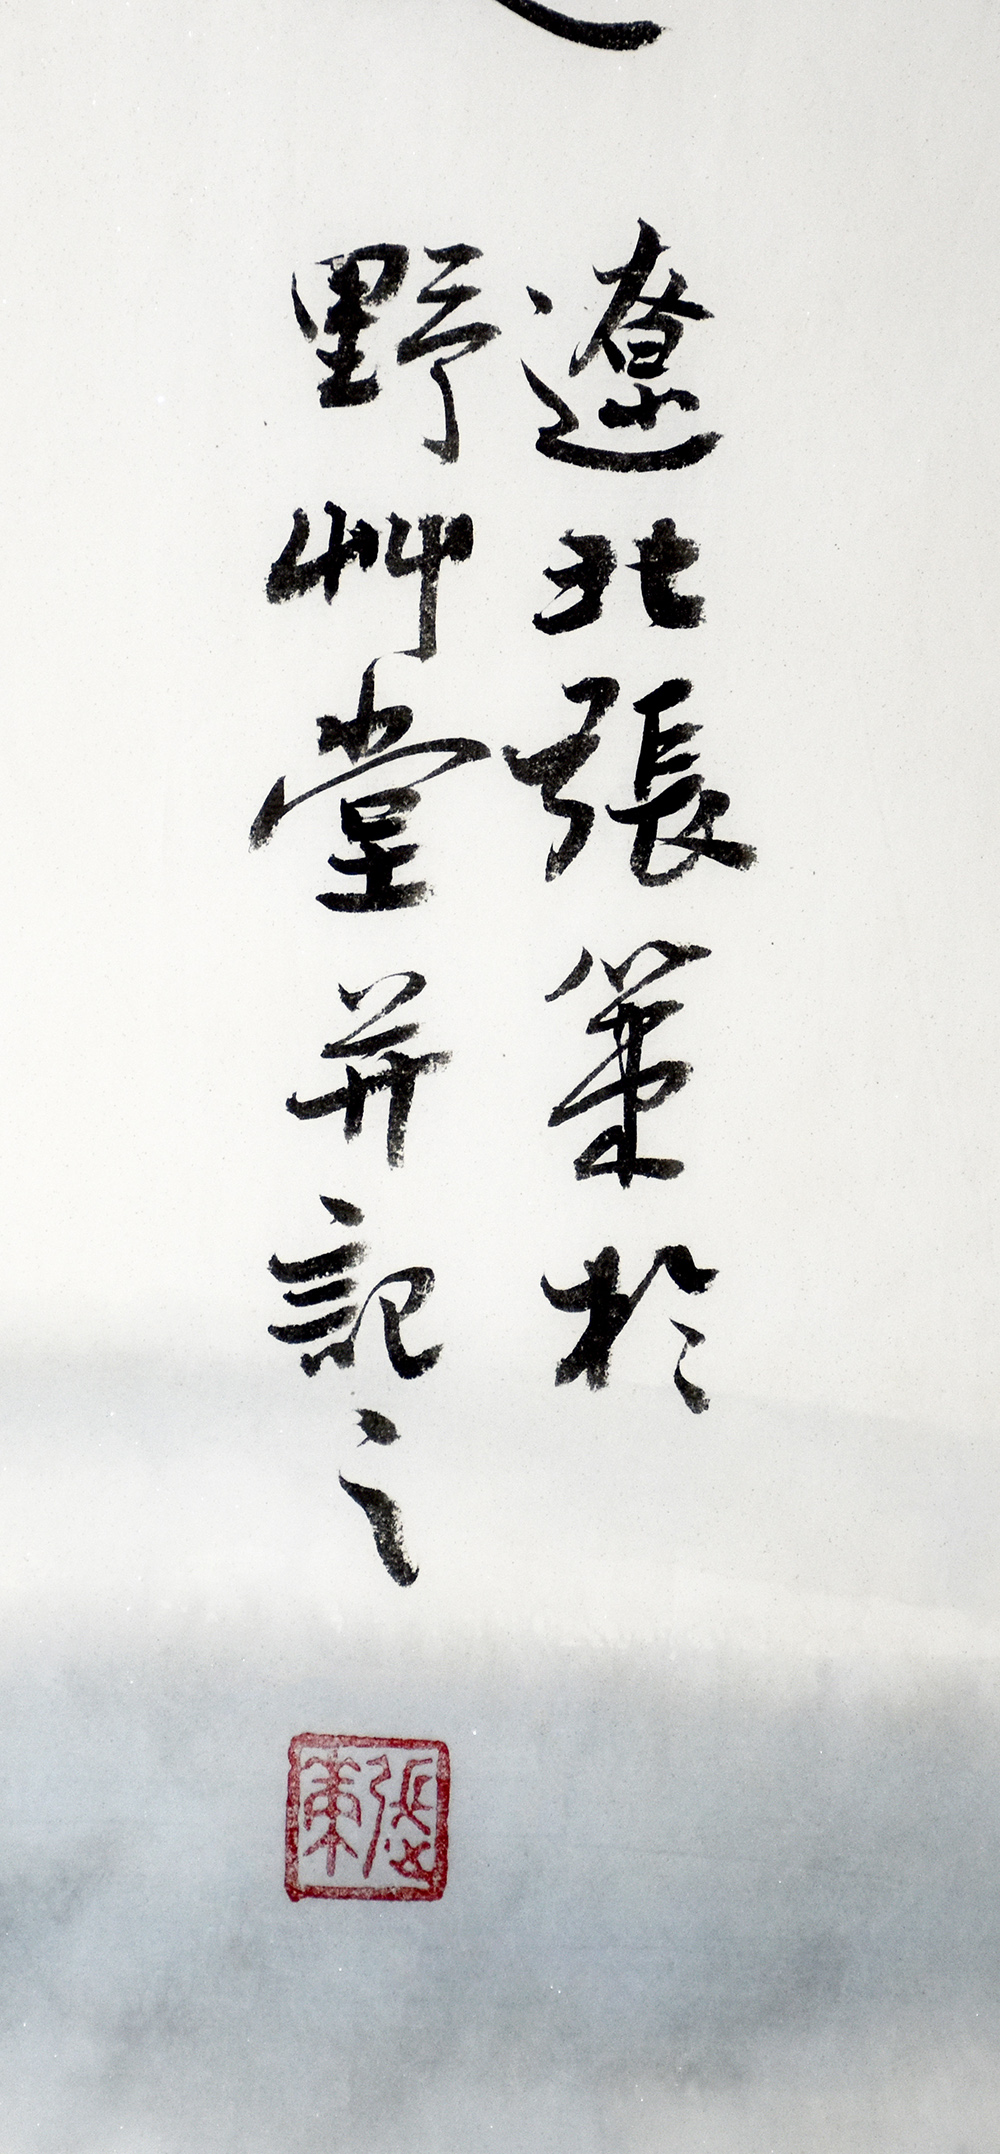 遼北張策於
野艸堂并記之
張東